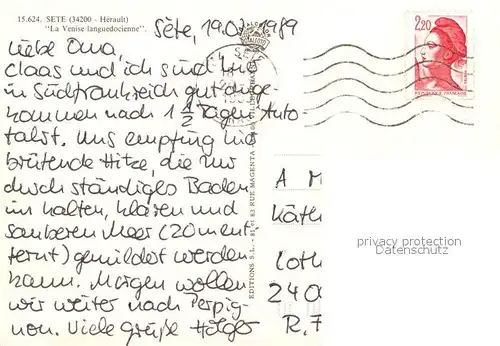 15.624. SETE (34200 - Hérault)
"La Venise languedocienne".
Sète, 19. 1989
Liebe Oma,
Claas und ich sind hier
in Südfrankreich gut ange-
kommen nach 1 1/2 Tagen Auto-
fahrt. Uns empfing hier
brütende Hitze, die nur
durch ständiges Baden
im kalten, klaren und
sauberen Meer (20m ent-
fernt) gemildert werden
kann. Morgen wollen
wir weiter nach Perpig-
non. Viele Grüße Holger
EDITIONS S.L. - 81 RUE MAGENTA
2,20
REPUBLIQUE FRANÇAISE
A M
Käth
Loth
2400
R.F
privacy protection
Datenschutz